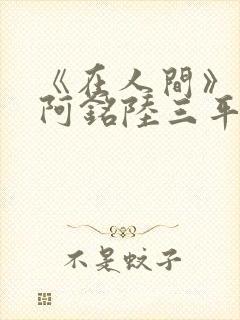 《在人間》
阿銘陸三年
不是蚊子